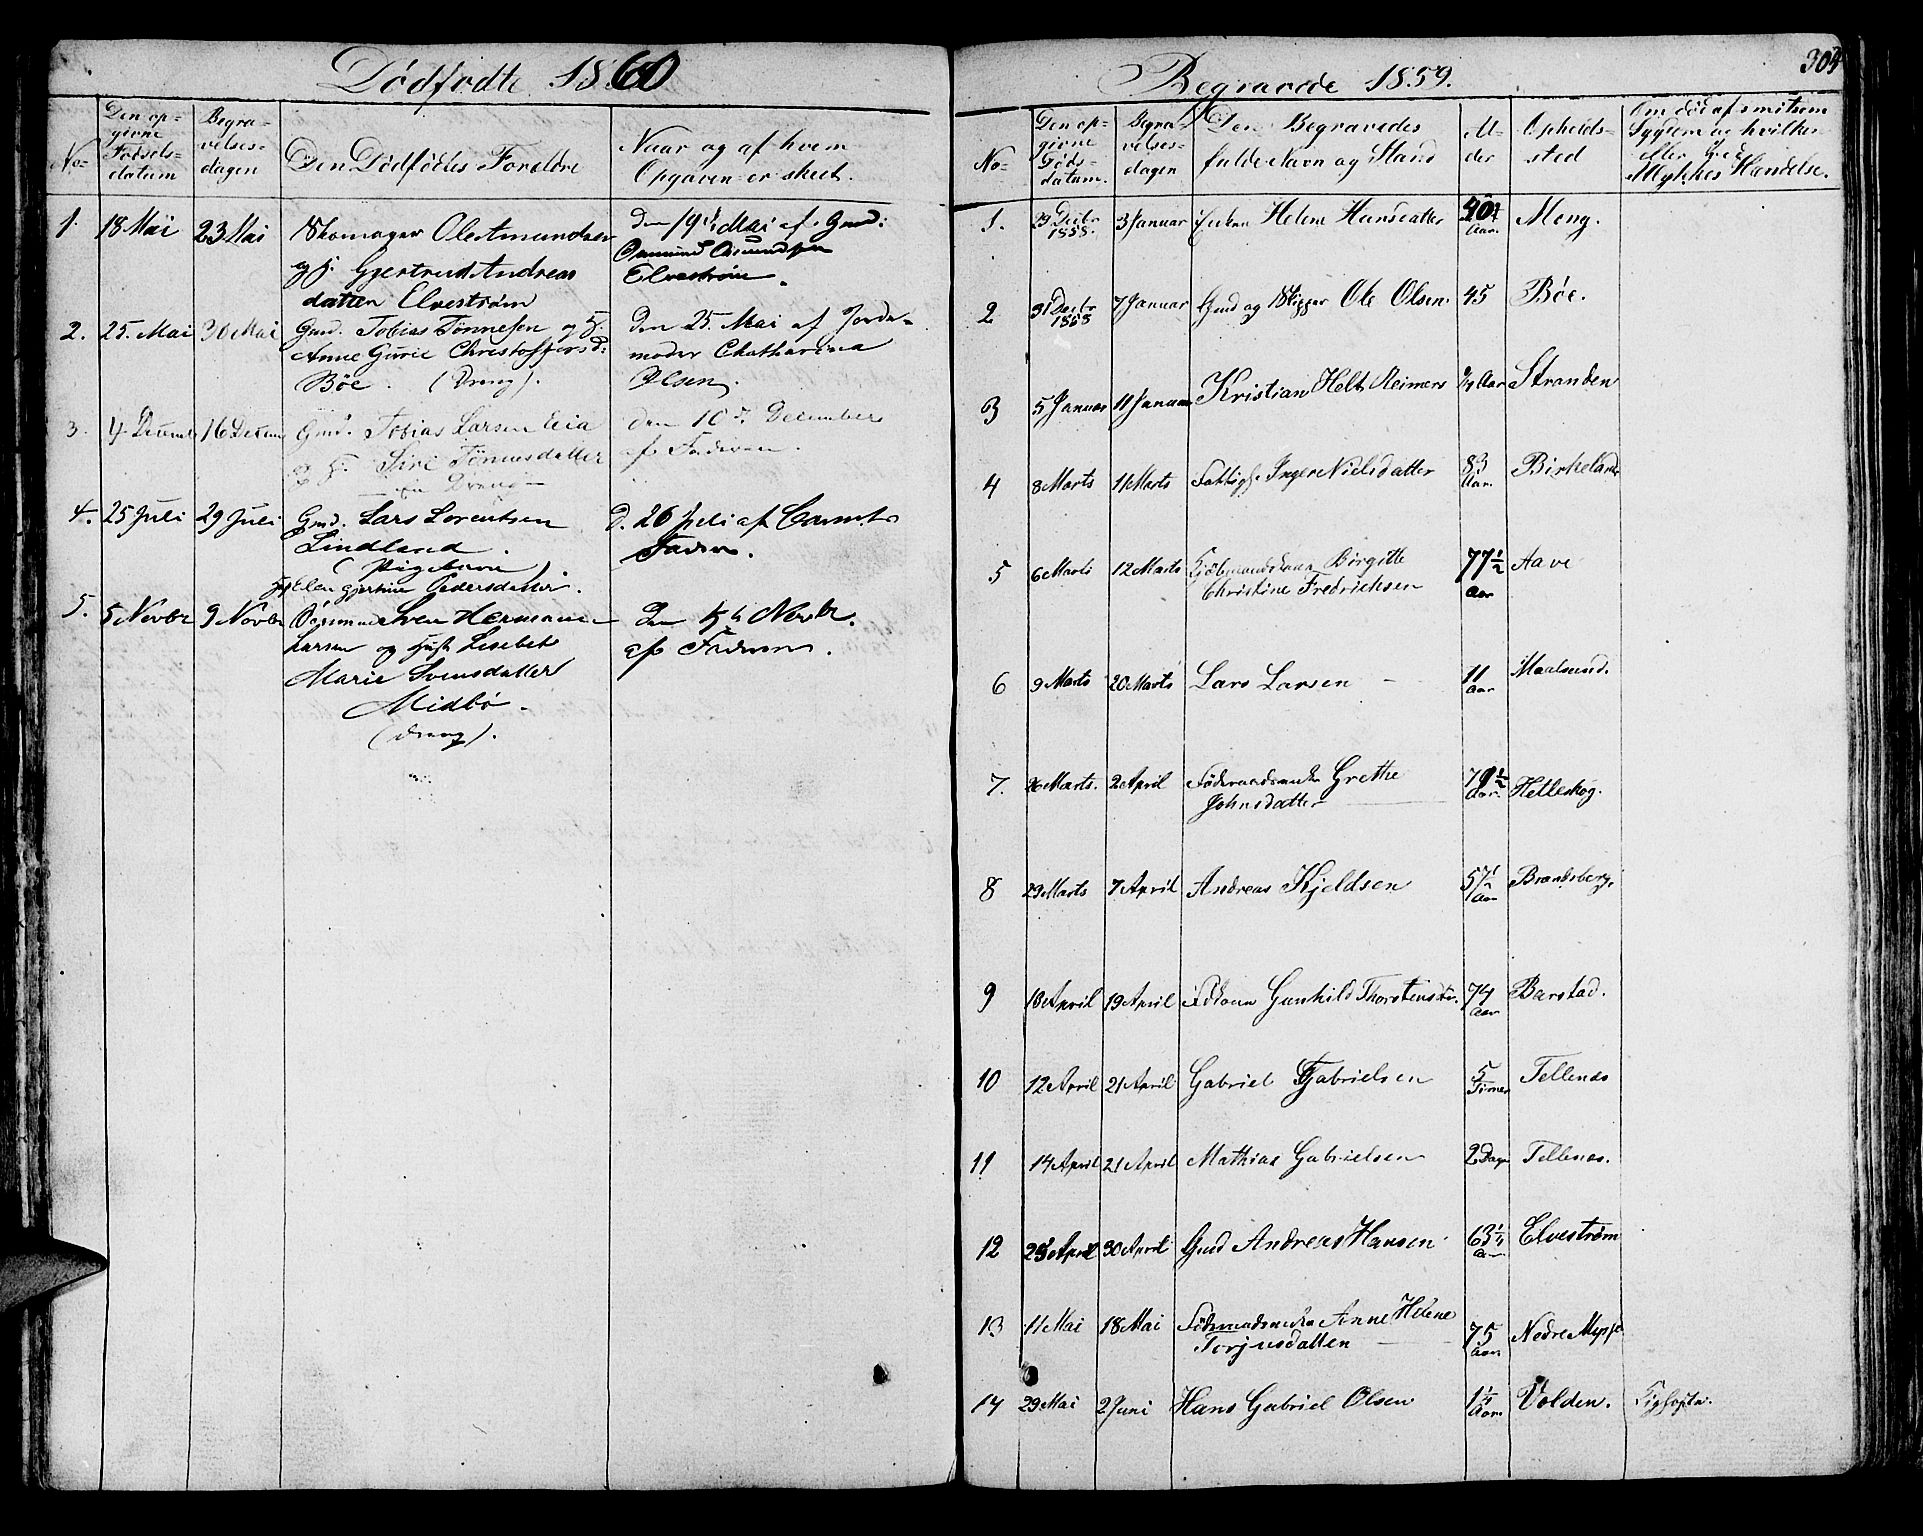 Dødfødte 1860
No
Den op-
givne
Fødsels-
datum
Begra-
velses-
dagen
Den Dødfødtes Forældre
Naar og af hvem
Opgaven er skeet.
1. 18 Mai 23 Mai Skomager Ole Amundsen
og H. Gjertrud Andreas
datter Elvestrøm
Den 19de Mai af Gmd:
Elvestrøm.
2. 25. Mai 30 Mai Gmd. Tobias Tønnesen og H.
Anne Gurie Christoffersd:
Bøe. (Dreng).
Den 25. Mai af Jorde-
moder Chatharina
Olsen.
3. 4. Decembr 16 Decem Gmd. Tobias Larsen Eia
og H. Siri Tønnesdatter
- En Dreng -
Den 10de December
af Faderen.
4. 25 Juli 29 Juli Gmd. Lars Lorentsen
Lindland.
(Pigebarn).
Elen Gjertine Pedersdatter.
D. 26 Juli af Barnets
Fader.
5. 5 Novbr 9 Novbr Sven Herman
Larsen og Hust Lisebet
Marie Svensdatter
Midbø.
(Dreng).
Den 5te Novbr.
af Faderen.
Begravede 1859.
303
No-
Den op-
givne
Døds-
datum.
Begra-
velses-
dagen
Den Begravedes
fulde Navn og Stand
Al-
der
Opholds-
sted
Om død af smitsom
Sygdom og hvilken
eller ved
Ulykkes Hændelse.
1. 29 Decbr 1858. 3 Januar Enken Helene Hansdatter 40 Aar. Mong.
2 31 Decbr 1858 7 Januar Gmd og Skipper Ole Olsen. 45 Bøe.
3 5 Januar 11 Januar Kristian Helt Reimers Aar Stranden
4 8 Marts 11 Marts Fattigl. Inger Nielsdatter 83 Aar. Birkeland
5 6 Marts 12 Marts Kjøbmandsenken Birgitte
Christine Fredrichsen 77½ Aar Aave
6 9 Marts 20 Marts Lars Larsen - 11 Aar Maalsund.
7. 26 Marts. 2 April Føderaadsenke Grethe
Johnsdatter 79½ Aar. Helleskog.
8 29 Marts 7 April Andreas Kjeldsen 57½ Aar Brandsberg.
9 10 April 19 April Gunhild Thorstensdtr. 74 Aar Barstad.
10 12 April 21 April Gabriel Gabrielsen 5 Timer Tellenes
11 14 April 21 April Mathias Gabrielsen 2 Dage Tellenes.
12 25 April 30 April Gmd Andreas Hansen 63¼ Aar Elvestrøm
13 11 Mai 18 Mai Føderaadsenke Anne Helene
Torjusdatter - 75 Aar Nedre Mysse
14 29 Mai 2 Juni Hans Gabriel Olsen 1¼ Aar Volden.